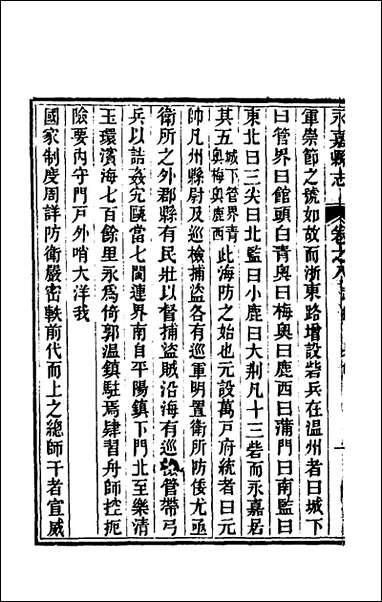 永嘉縣志 卷之八
軍崇節之號如故而浙東路增設砦兵在温州者曰城下
曰管界曰館頭曰青奥曰梅奥曰鹿西曰蒲門曰南監曰
東北曰三尖曰北監曰小鹿曰大荆凡十三砦而永嘉居
其五城下管界青奥梅奥鹿西此海防之始也元設萬戸府統者曰元
帥凡州縣尉及巡檢捕盜各有巡軍明置衛所防倭尤亟
衛所之外郡縣有民壯以督捕盜賊沿海有巡
管帶弓
兵以詰姦宄甌當七閩連界南自平陽鎮下門北至樂清
玉環濱海七百餘里永爲倚郭温鎮駐焉肄習舟師控扼
險要内守門戸外哨大洋我
國家制度周詳防衛嚴密軼前代而上之總師干者宣威